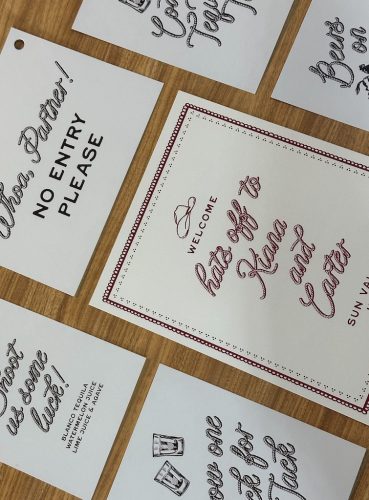 Whoa, Partner!
NO ENTRY
PLEASE
WELCOME
hats off to
Kiana
and
Carter
Beers
on
Shoot
us some
luck!
BLANCO TEQUILA
WATERMELON JUICE
LIME JUICE & AGAVE
one
for
Jack